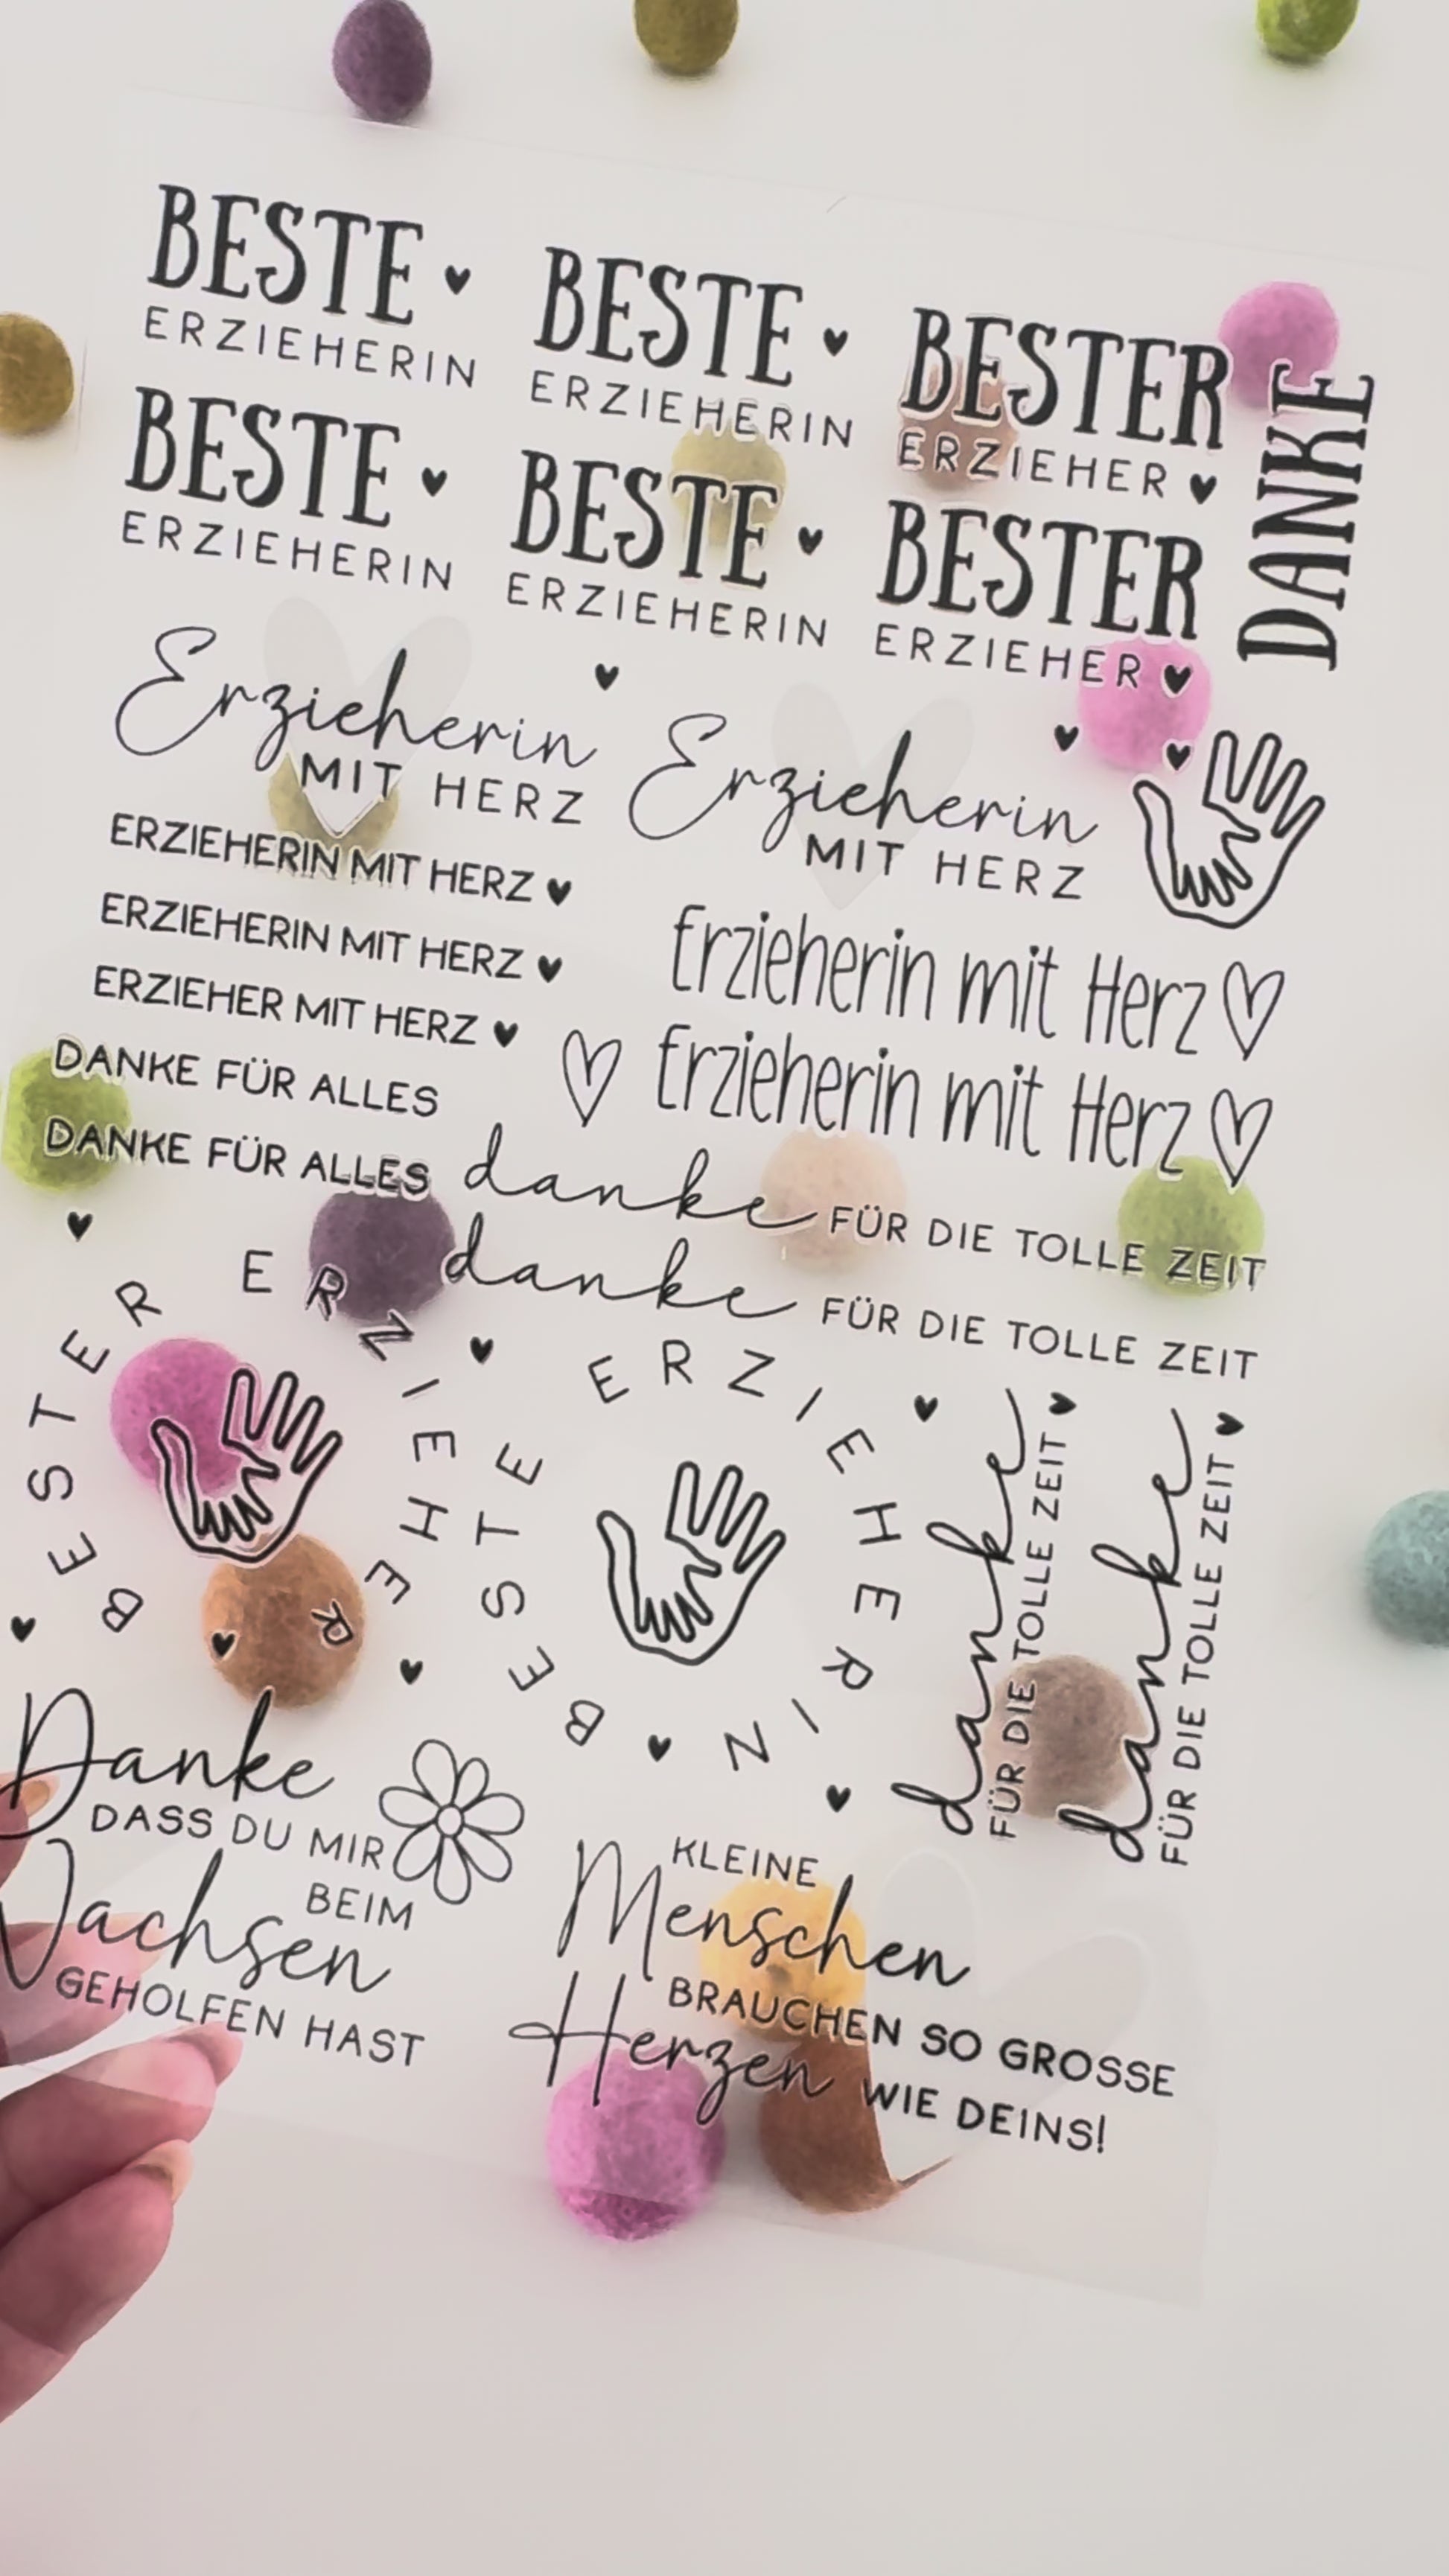 BESTE
ERZIEHERIN
BESTE
ERZIEHERIN
BESTER
ERZIEHER
DANKE
BESTE
ERZIEHERIN
BESTE
ERZIEHERIN
BESTER
ERZIEHER
Erzieherin
MIT HERZ
Erzieherin
MIT HERZ
ERZIEHERIN MIT HERZ
ERZIEHERIN MIT HERZ
ERZIEHER MIT HERZ
Erzieherin mit Herz
Erzieherin mit Herz
DANKE FÜR ALLES
DANKE FÜR ALLES
danke FÜR DIE TOLLE ZEIT
danke FÜR DIE TOLLE ZEIT
BESTER ERZIEHER
BESTE ERZIEHERIN
danke
FÜR DIE TOLLE ZEIT
danke
FÜR DIE TOLLE ZEIT
Danke
DASS DU MIR
BEIM
Wachsen
GEHOLFEN HAST
KLEINE
Menschen
BRAUCHEN SO GROSSE
Herzen WIE DEINS!